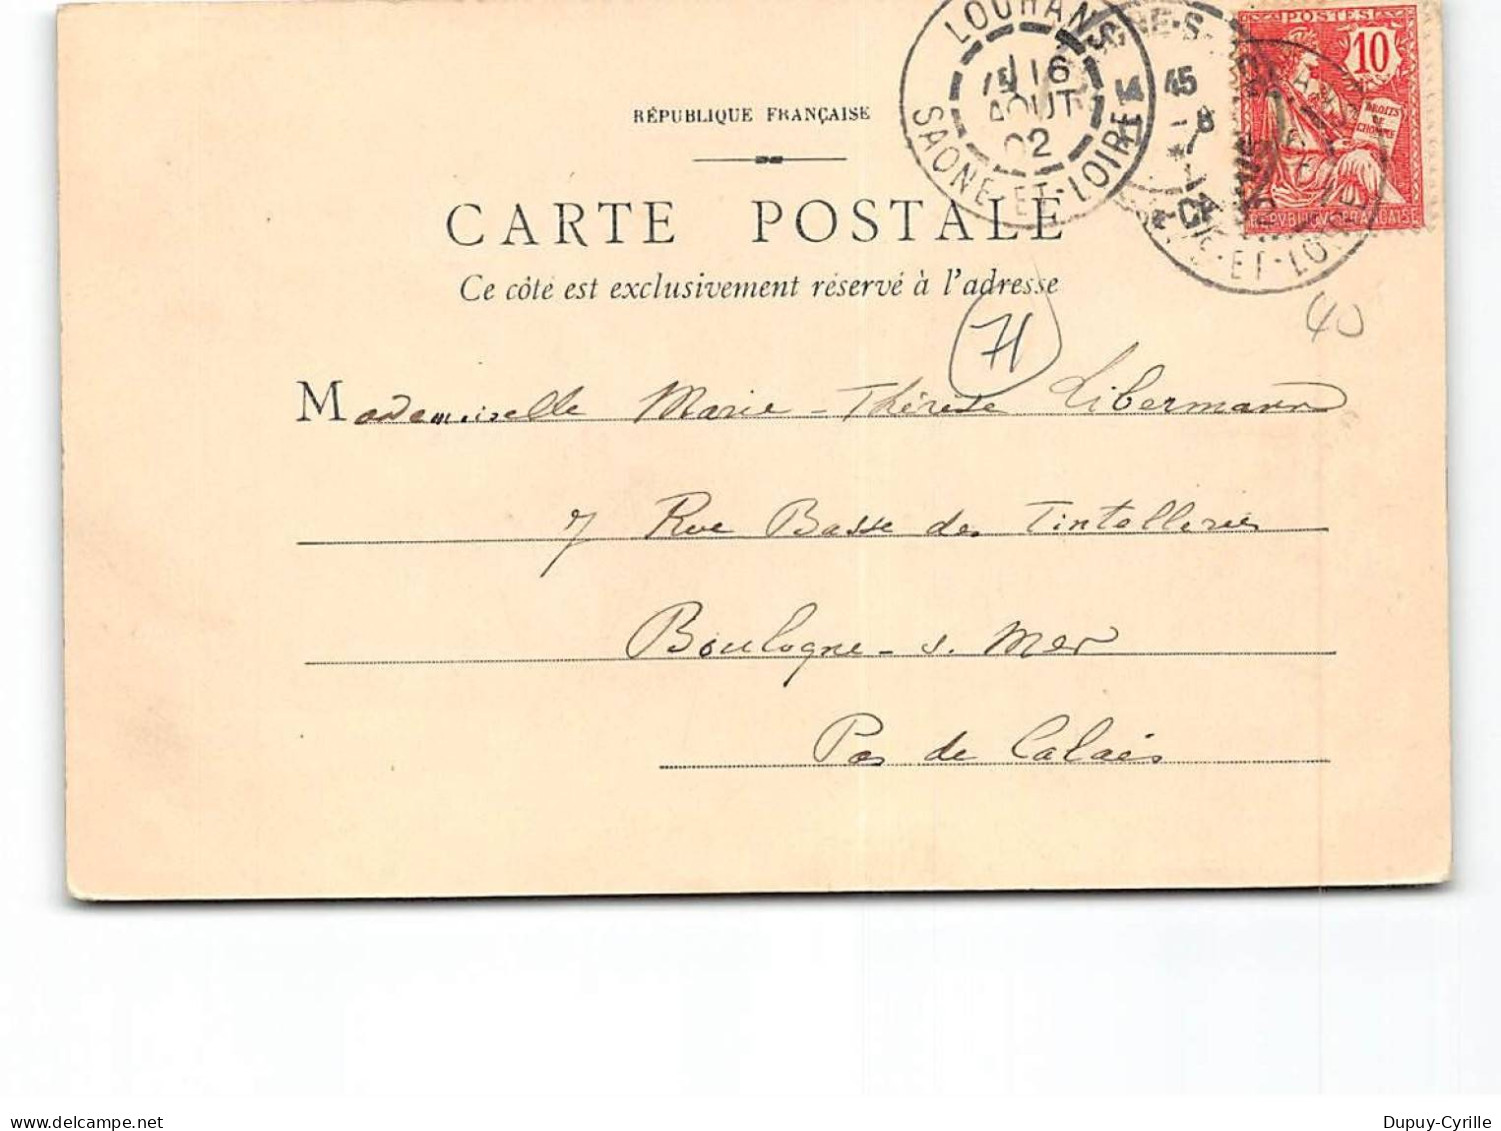 LOUHANS
16
AOUT
02
SAONE-ET-LOIRE
45
8
POSTES
10
DROITS
DE
L'HOMME
REPVBLIQVE FRANÇAISE
ET-LOIRE
RÉPUBLIQUE FRANÇAISE
CARTE POSTALE
Ce côté est exclusivement réservé à l'adresse
71
40
Mademoiselle Marie-Thérèse Libermann
7 Rue Basse des Tintelleries
Boulogne-s. Mer
Pas de Calais
Dupuy-Cyrille